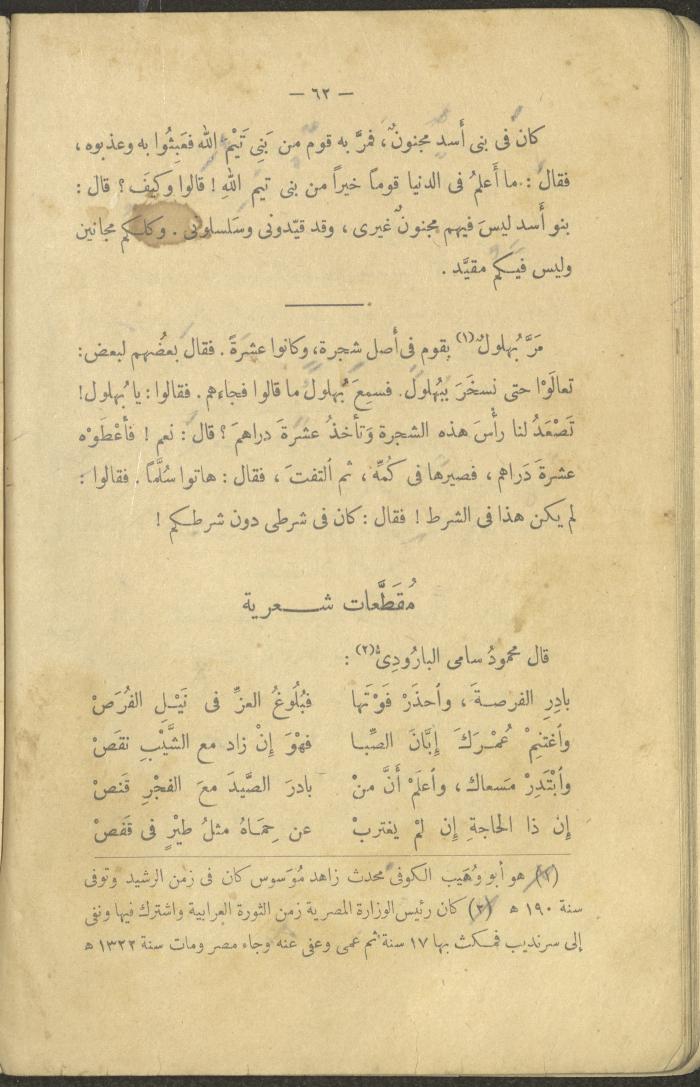 — ٦٢ —
كان فى بنى أَسد مجنونٌ، فمرَّ به قوم من بَنِى تَيْم الله فعَبِثُوا به وعذبوه ،
فقال : ما أَعلمُ فى الدنيا قوماً خيراً من بنى تيم اللهِ ! قالوا وكيفَ ؟ قال :
بنو أَسد ليسَ فيهم مجنونٌ غيرى ، وقد قيّدونى وسَلسلونى . وكلكم مجانين
وليس فيكم مقيَّد .
مَرَّ بُهلولٌ(١) بِقوم فى أصل شجرة، وكانوا عشرةً . فقال بعضُهم لبعض:
تعالَوْا حتى نسخَرَ بِبُهلول. فسمِعَ بُهلول ما قالوا فجاءهم . فقالوا : يا بُهلول!
تَصْعَدُ لنا رأْسَ هذه الشجرة وَتأخذُ عشرةَ دراهمَ ؟ قال : نعم ! فأعْطَوْه
عشرةَ دَراهم ، فصيرها فى كُمِّه ، ثم اَلتفتَ ، فقال : هاتوا سُلَّماً . فقالوا :
لم يكن هذا فى الشرط ! فقال : كان فى شرطى دون شرطكم !
مُقَطَّعات شعرية
قال محمودُ سامى البارُودِىُّ(٢) :
بادِرِ الفرصةَ ، واَحذَرْ فَوْتَها فبُلُوغُ العزِّ فى نَيْلِ الفُرَصْ
واَغتنِمْ عُمْرَكَ إِبَّانَ الصِّبا فهْوَ إِنْ زاد مع الشَّيْبِ نقَصْ
واَبْتَدِرْ مَسعاك ، واَعلَمْ أَنَّ منْ بادرَ الصَّيدَ معَ الفجْرِ قَنصْ
إِن ذا الحاجةِ إِن لمْ يغتربْ عن حِمَاهُ مثلُ طيْرٍ فى قَفصْ
(١) هو أبو وُهَيب الكوفى محدث زاهد مُوَسوس كان فى زمن الرشيد وتوفى
سنة ١٩٠ ه (٢) كان رئيس الوزارة المصرية زمن الثورة العرابية واشترك فيها ونفى
إلى سرنديب فمكث بها ١٧ سنة ثم عمى وعفى عنه وجاء مصر ومات سنة ١٣٢٢ ه